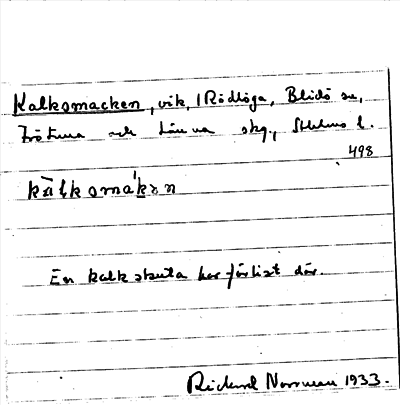 Kalksmacken, vik, Rödlöga, Blidö sn,
Frötuna och Länna skg., Sthlms l.
498
kàlksmak̀ən
En kalkskuta har förlist där.
Rickard Norrman 1933.